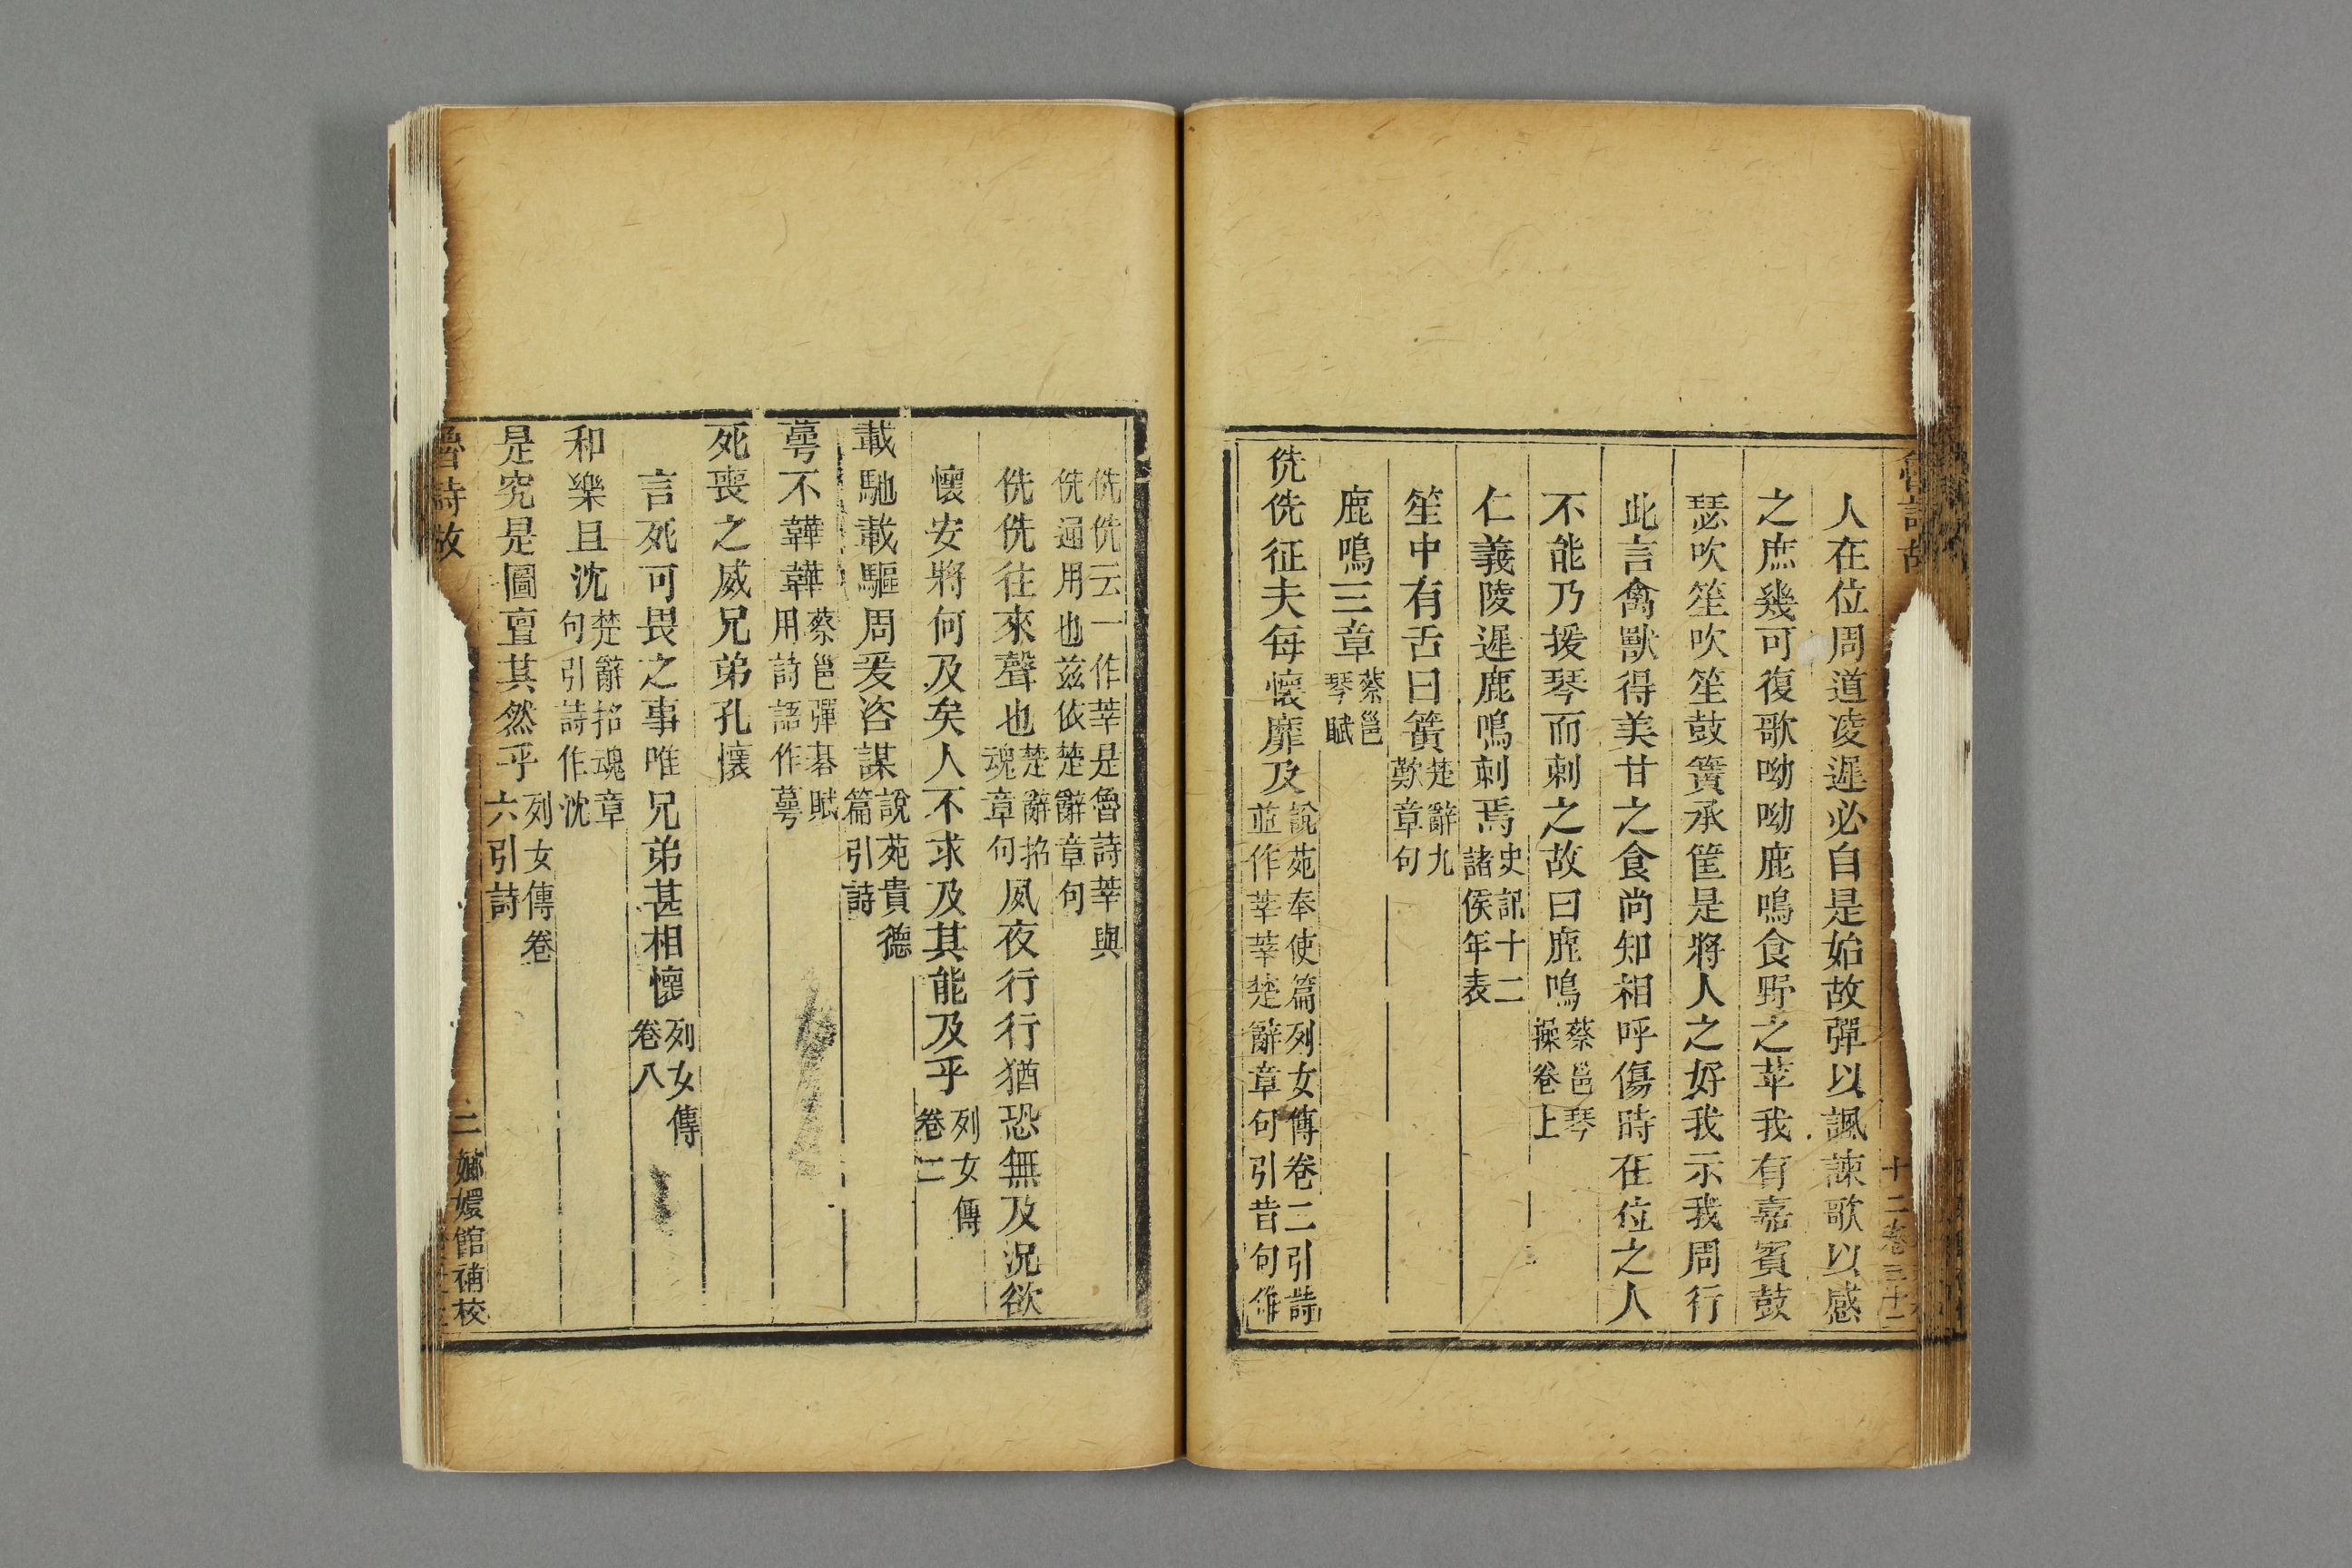 人在位周道凌遲必自是始故彈以諷諫歌以感
之庶幾可復歌呦呦鹿鳴食野之苹我有嘉賓鼓
瑟吹笙吹笙鼓簧承筐是將人之好我示我周行
此言禽獸得美甘之食尚知相呼傷時在位之人
不能乃援琴而刺之故曰鹿鳴蔡邕琴操卷上
仁義陵遲鹿鳴刺焉史記十二諸侯年表
笙中有舌曰簧楚辭九歎章句
鹿鳴三章蔡邕琴賦
侁侁征夫每懷靡及說苑奉使篇列女傳卷二引詩並作莘莘楚辭章句引昔句作
侁侁云一作莘是魯詩莘與侁通用也茲依楚辭章句
侁侁往來聲也楚辭招魂章句夙夜行行猶恐無及況欲
懷安將何及矣人不求及其能及乎列女傳卷二
載馳載驅周爰咨謀說苑貴德篇引詩
蕚不韡韡蔡邕彈碁賦用詩語作蕚
死喪之威兄弟孔懷
言死可畏之事唯兄弟甚相懷列女傳卷八
和樂且沈楚辭招魂章句引詩作沈
是究是圖亶其然乎列女傳卷六引詩
魯詩故 二 嫏嬛館補校